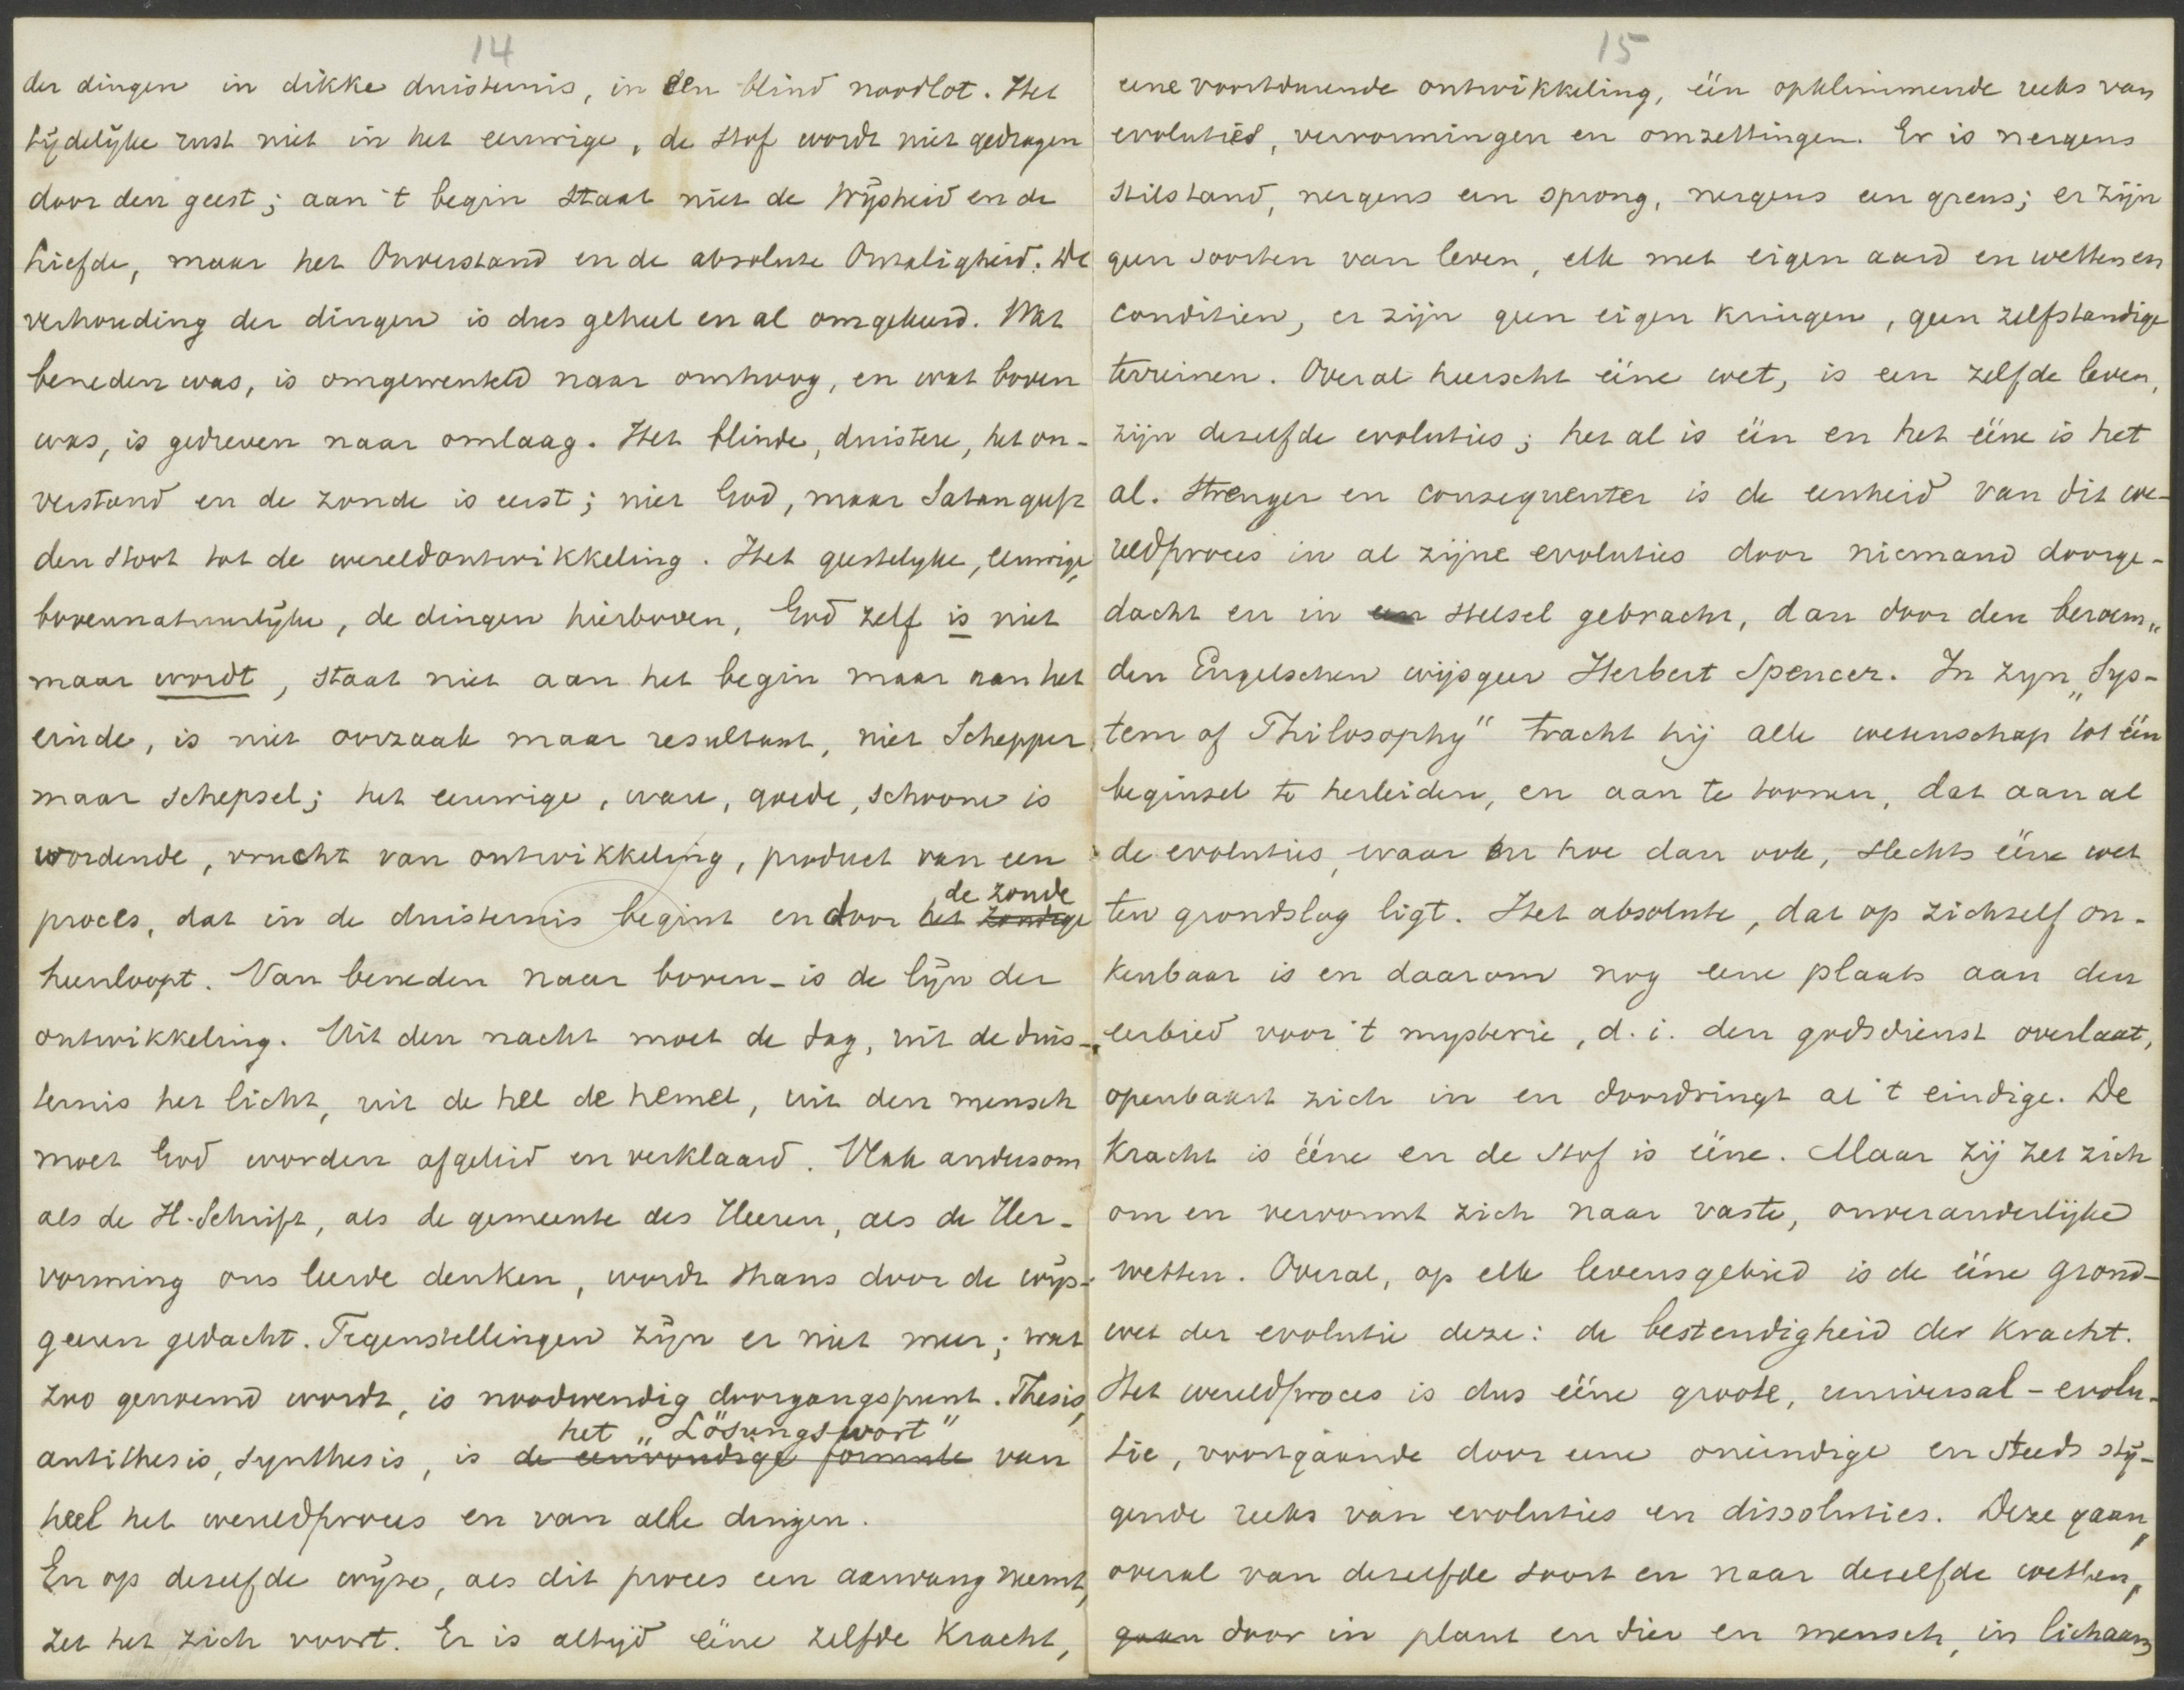 14
der dingen in dikke duisternis, in een blind noodlot. Het
tijdelijke rust niet in het eeuwige, de stof wordt niet gedragen
door den geest; aan 't begin staat niet de Wijsheid en de
Liefde, maar het Onverstand en de absolute Onzaligheid. De
verhouding der dingen is dus geheel en al omgekeerd. Wat
beneden was, is omgewenteld naar omhoog, en wat boven
was, is gedreven naar omlaag. Het blinde, duistere, het on-
verstand en de zonde is eerst; niet God, maar Satan geeft
den stoot tot de wereldontwikkeling. Het geestelijke, eeuwige,
bovennatuurlijke, de dingen hierboven, God zelf is niet
maar wordt, staat niet aan het begin maar aan het
einde, is niet oorzaak maar resultaat, niet Schepper
maar schepsel; het eeuwige, ware, goede, schoone is
wordende, vrucht van ontwikkeling, product van een
proces, dat in de duisternis begint en door het zondige de zonde
heenloopt. Van beneden naar boven - is de lijn der
ontwikkeling. Uit den nacht moet de dag, uit de duis-
ternis het licht, uit de hel de hemel, uit den mensch
moet God worden afgeleid en verklaard. Vlak andersom
als de H. Schrift, als de gemeente des Heeren, als de Her-
vorming ons leerde denken, wordt thans door de wijs-
geeren gedacht. Tegenstellingen zijn er niet meer; wat
zoo genoemd wordt, is noodwendig doorgangspunt. Thesis,
antithesis, synthesis, is de eenvoudige formule het „Lösungswort" van
heel het wereldproces en van alle dingen.
En op dezelfde wijze, als dit proces een aanvang neemt,
zet het zich voort. Er is altijd ééne zelfde kracht,
15
eene voortdurende ontwikkeling, één opklimmende reeks van
evoluties, vervormingen en omzettingen. Er is nergens
stilstand, nergens een sprong, nergens een grens; er zijn
geen soorten van leven, elk met eigen aard en wetten en
conditien, er zijn geen eigen kringen, geen zelfstandige
terreinen. Overal heerscht ééne wet, is een zelfde leven,
zijn dezelfde evoluties; het al is één en het ééne is het
al. Strenger en consequenter is de eenheid van dit we-
reldproces in al zijne evoluties door niemand doorge-
dacht en in een stelsel gebracht, dan door den beroem„
den Engelschen wijsgeer Herbert Spencer. In zijn „Sys-
tem of Philosophy" tracht hij alle wetenschap tot één
beginsel te herleiden, en aan te toonen, dat aan al
de evoluties, waar en hoe dan ook, slechts ééne wet
ten grondslag ligt. Het absolute, dat op zichzelf on-
kenbaar is en daarom nog eene plaats aan den
eerbied voor 't mysterie, d. i. den godsdienst overlaat,
openbaart zich in en doordringt al 't eindige. De
kracht is ééne en de stof is ééne. Maar zij zet zich
om en vervormt zich naar vaste, onveranderlijke
wetten. Overal, op elk levensgebied is de ééne grond-
wet der evolutie deze: de bestendigheid der kracht.
Het wereldproces is dus ééne groote, universal-evolu-
tie, voortgaande door eene oneindige en steeds stij-
gende reeks van evoluties en dissoluties. Deze gaan,
overal van dezelfde soort en naar dezelfde wetten,
gaan door in plant en dier en mensch, in lichaam